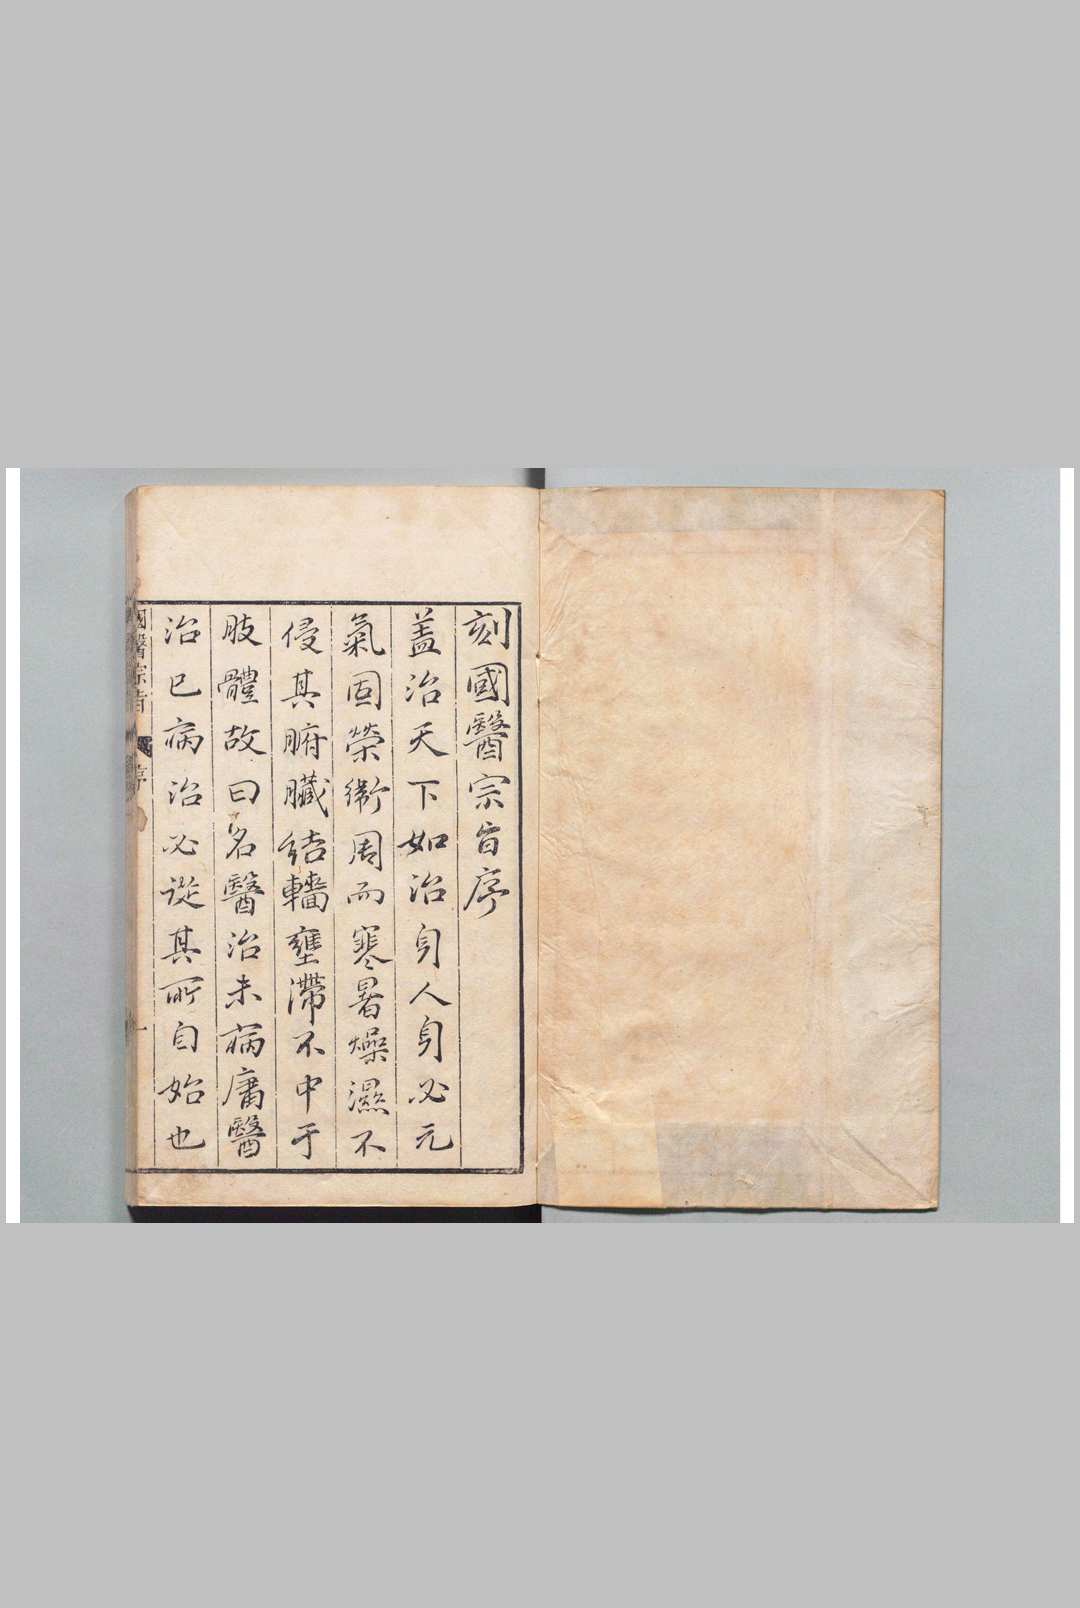 刻國醫宗旨序
蓋治天下如治身人身必元
氣固榮衛周而寒暑燥濕不
侵其腑臟結轖壅滯不中于
肢體故曰名醫治未病庸醫
治已病治必從其所自始也
國醫宗旨
序
一